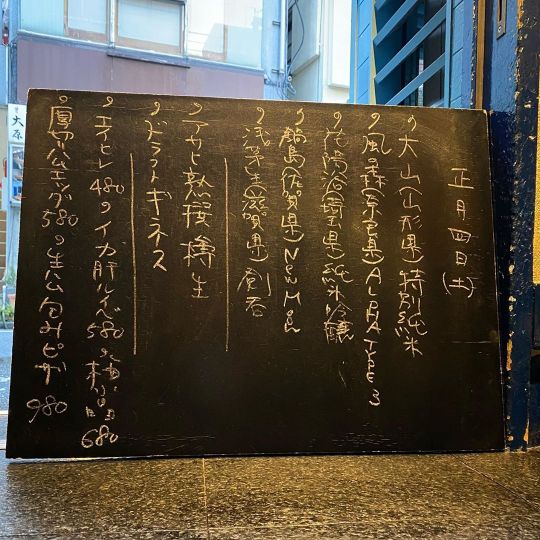 正月四日(土)
大山(山形県)特別純米
風の森(奈良県)ALPHA TYPE 3
花陽浴(埼玉県)純米吟醸
鍋島(佐賀県)New Moon
浅茅生(滋賀県)
アサヒ熟撰樽生
ドラフトギネス
エイヒレ 480 イカ肝ルイベ 580 680
厚切りハムエッグ 580 生ハム包みピザ 980
大原